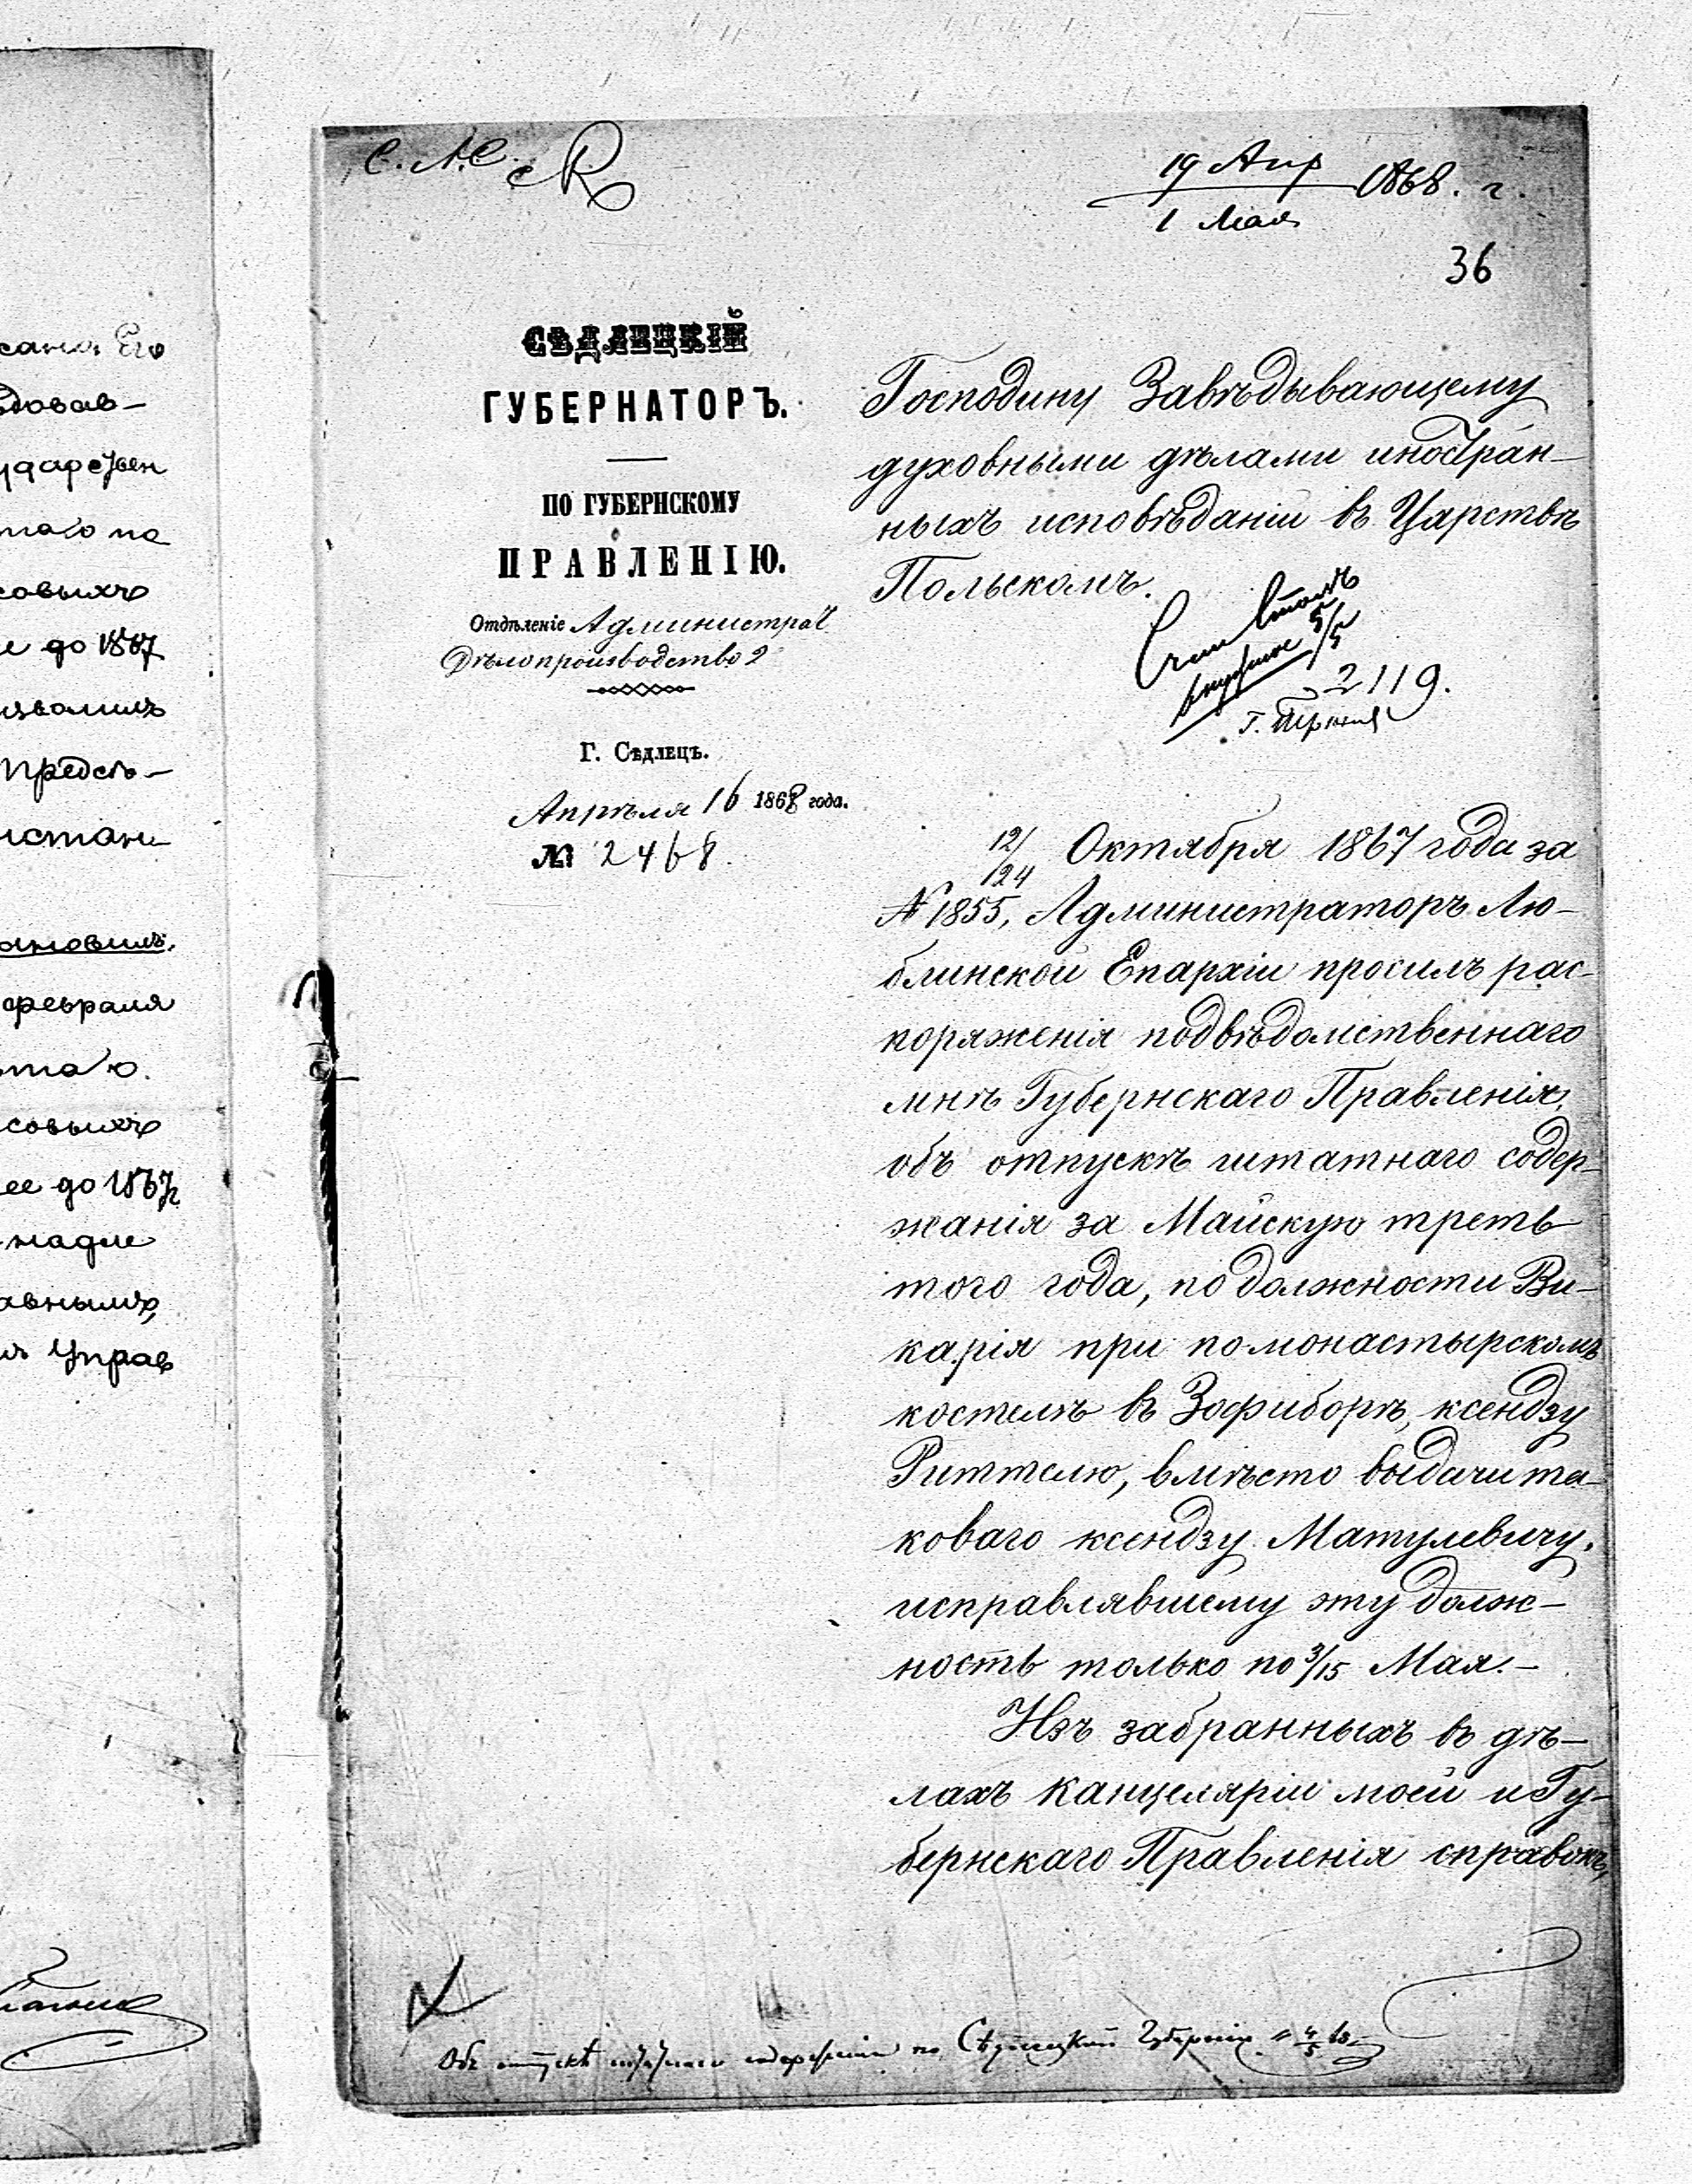 санія Его
едовав-
ударствен
таго по
совыхъ
е до 1867
изволилъ
Предсѣ-
истан-
ановилъ.
февраля
совыхъ
ее до 1867 г
надле
авнымъ,
Управ
С. Л. С.
19 Апр
1 Мая
1868. г.
36
СѢДЛЕЦКІЙ
ГУБЕРНАТОРЪ.
ПО ГУБЕРНСКОМУ
ПРАВЛЕНІЮ.
Отдѣленіе Администрат
Дѣлопроизводство 2
Г. Сѣдлецъ.
Апрѣля 16 1868 года.
№ 2468.
Господину Завѣдывающему
духовными дѣлами иностран-
ныхъ исповѣданій въ Царствѣ
Польскомъ.
5/5
2119.
12/24 Октября 1867 года за
№ 1855, Администраторъ Лю-
блинской Епархіи просилъ рас-
поряженія подвѣдомственнаго
мнѣ Губернскаго Правленія,
объ отпускѣ штатнаго содер-
жанія за Майскую треть
того года, по должности Ви-
карія при помонастырскомъ
костелѣ въ Зофиборѣ, ксендзу
Риттелю, вмѣсто выдачи та-
коваго ксендзу Матулевичу,
исправлявшему эту долж-
ность только по 3/15 Мая.-
Изъ забранныхъ въ дѣ-
лахъ канцеляріи моей и Гу-
бернскаго Правленія справокъ,
Объ отпускѣ штатнаго содержанія по Сѣдлецкой Губерніи.